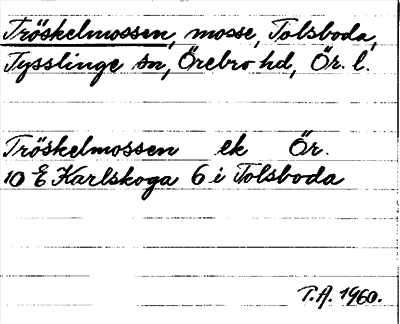 Tröskelmossen, mosse, Tolsboda,
Tysslinge sn, Örebro hd, Ör. l.
Tröskelmossen ek Ör.
10 E Karlskoga 6 i Tolsboda
T.A. 1960.